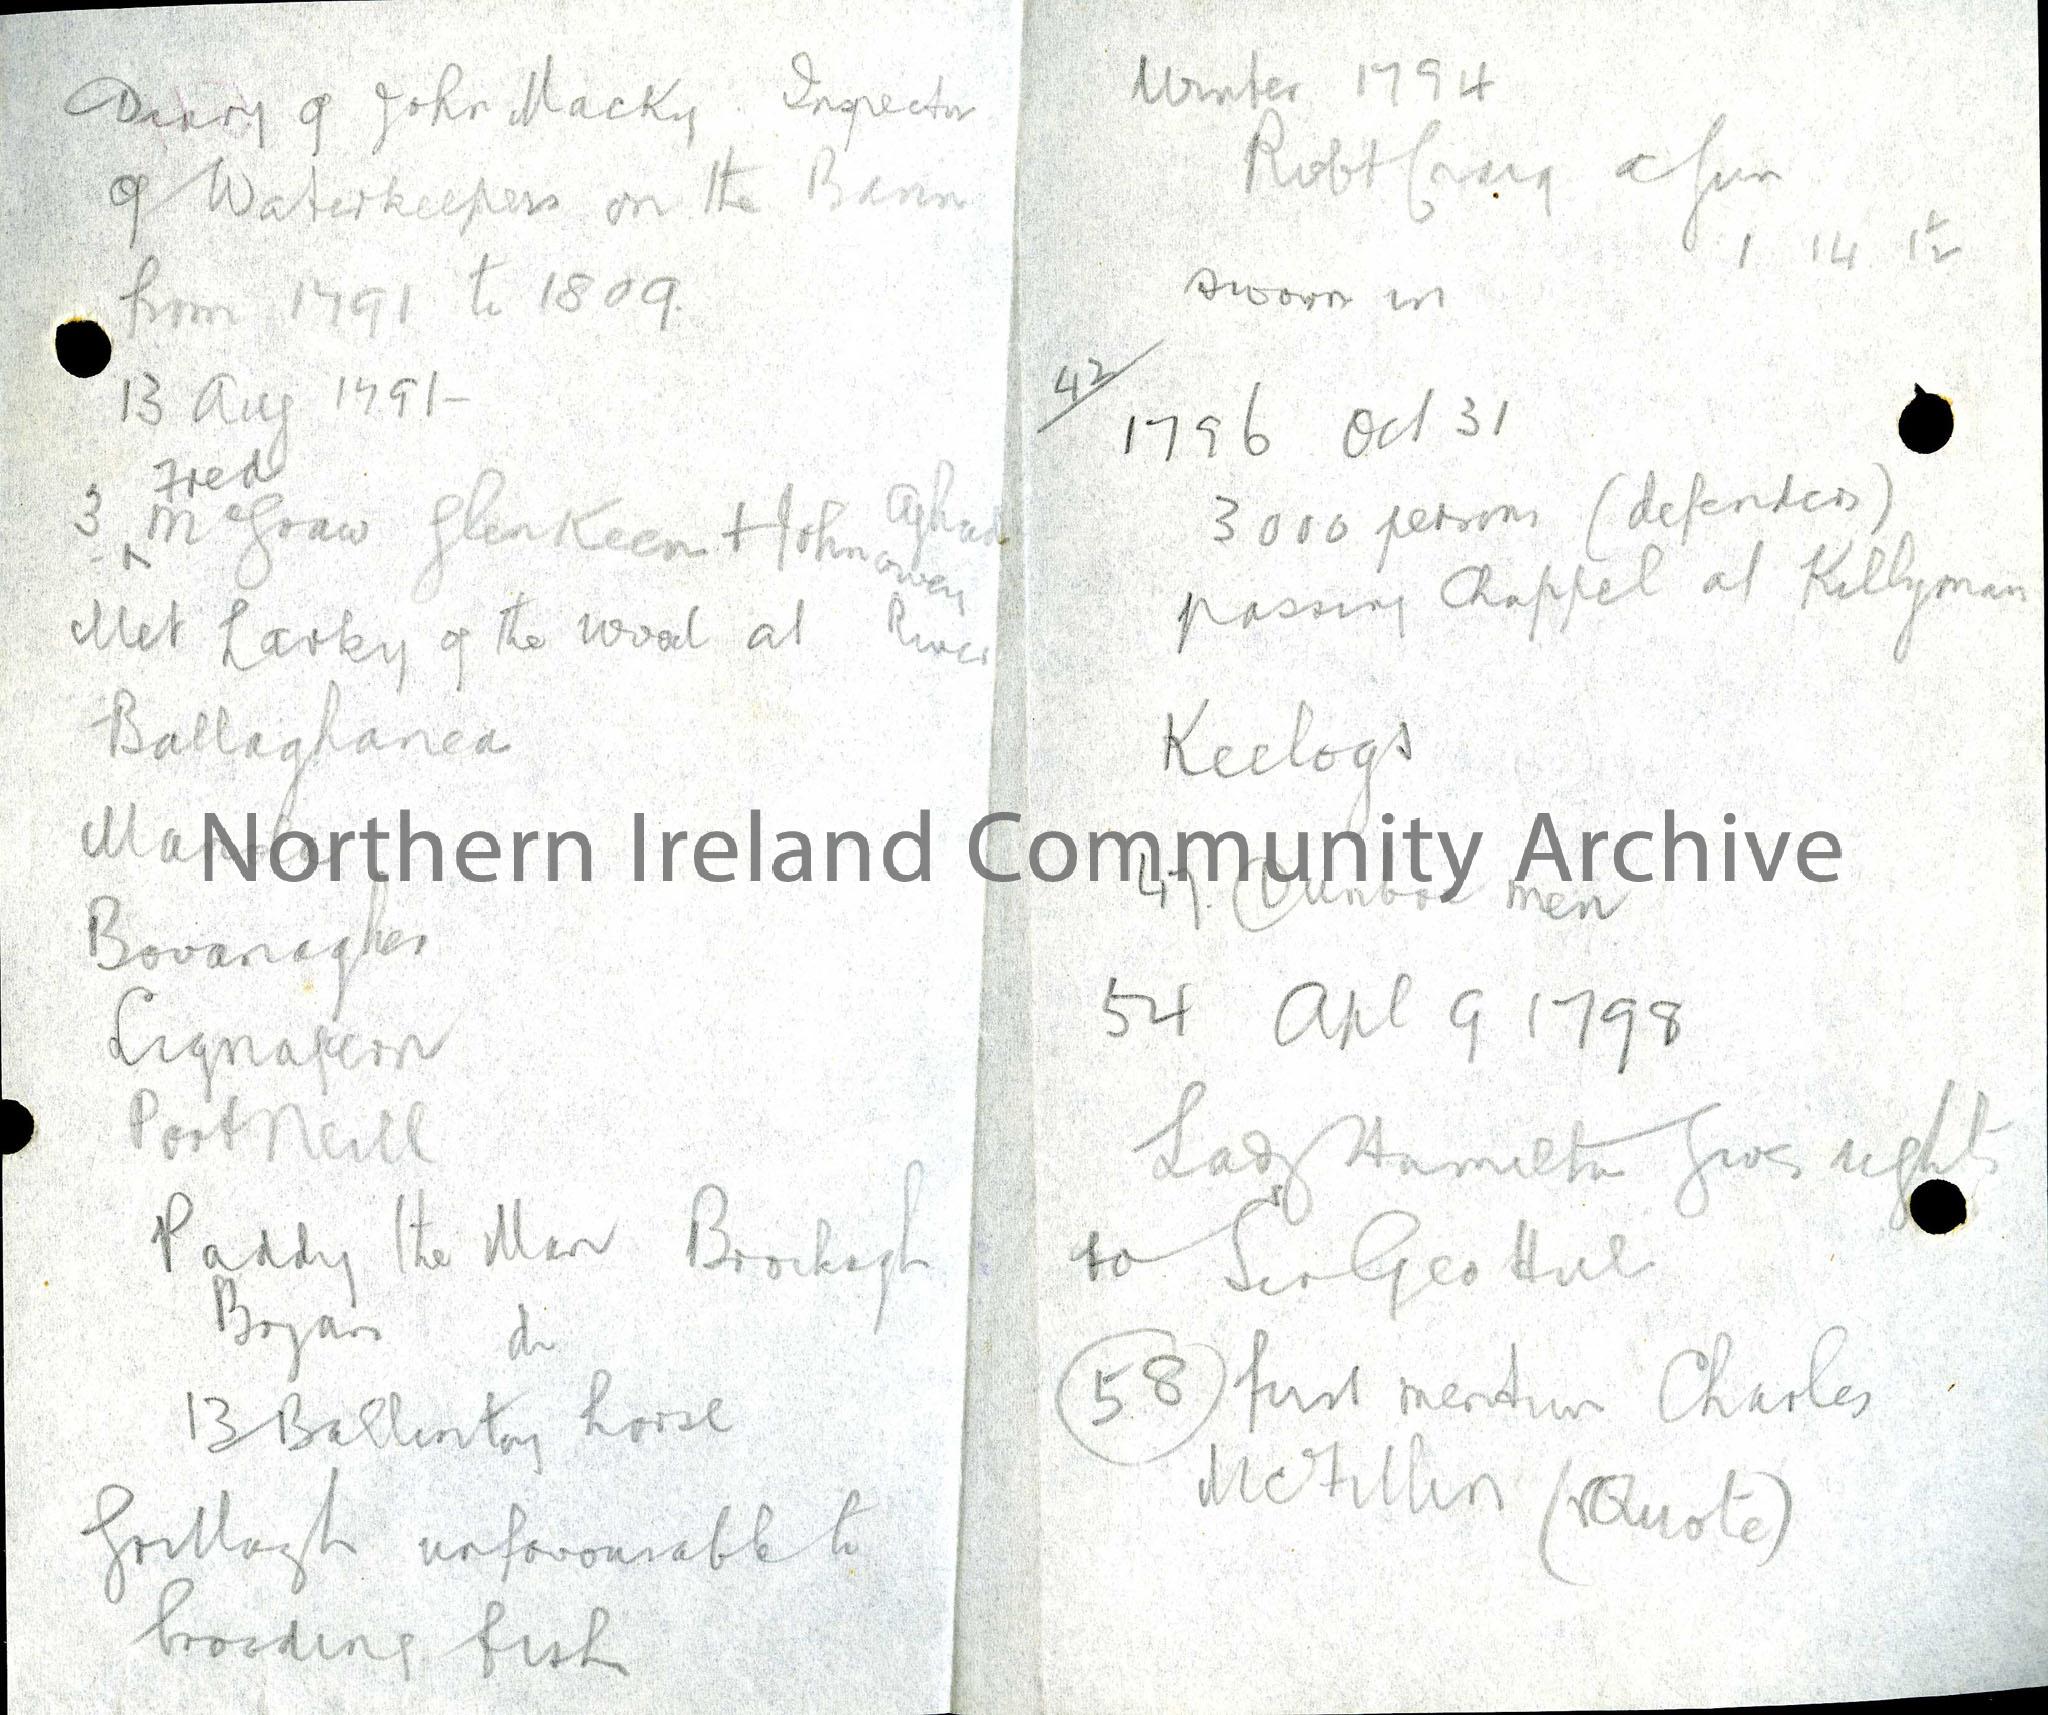 Diary of John Macky. Inspector
of Waterkeepers on the Bann
from 1791 to 1809.
13 Aug 1791-
Fred
3 McGraw Glenkeen + John Aghad
owey
Met Larky of the wood at River
Ballaghanea
Bovanagher
Lignapeon
Port Neill
Paddy the Man Brockagh
Bryan do
13 Ballintoy horse
Gortllagh unfavourable to
brooding fish
Winter 1794
Robt Craig a Gun
1 14 1½
sworn in
42
1796 Oct 31
3000 persons (defenders)
passing Chappel at Killyman
Keelogs
Northern Ireland Community Archive
47. Dunboe men
54 Apl 9 1798
Lady Hamilton Gives rights
to Sir Geo Hill
58 first mention Charles
McFillin (Quote)